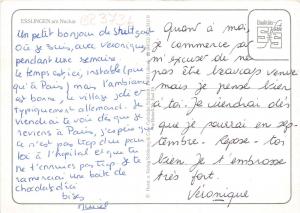 ESSLINGEN am Neckar
Un petit bonjour de Stuttgart
Où je suis, avec Véronique,
pendant une semaine
le temps est ici, instable (pire
qu'à Paris) mais l'ambiance
est bonne, le village joli et
typiquement allemand. Je
viendrai te voir dès que je
reviens à Paris, j'espère que
ce n'est pas trop dur pour
toi à l'hôpital et que tu
ne t'ennuies pas trop. Je te
ramènerai une boîte de
chocolat d'ici
bises
Quant à moi,
je commence par
m'excuser de ne
pas être beaucoup venue
mais je pense bien
à toi. Je viendrai dès
que je pourrai en sep-
tembre. Repose-toi
bien. Je t'embrasse
très fort.
Véronique